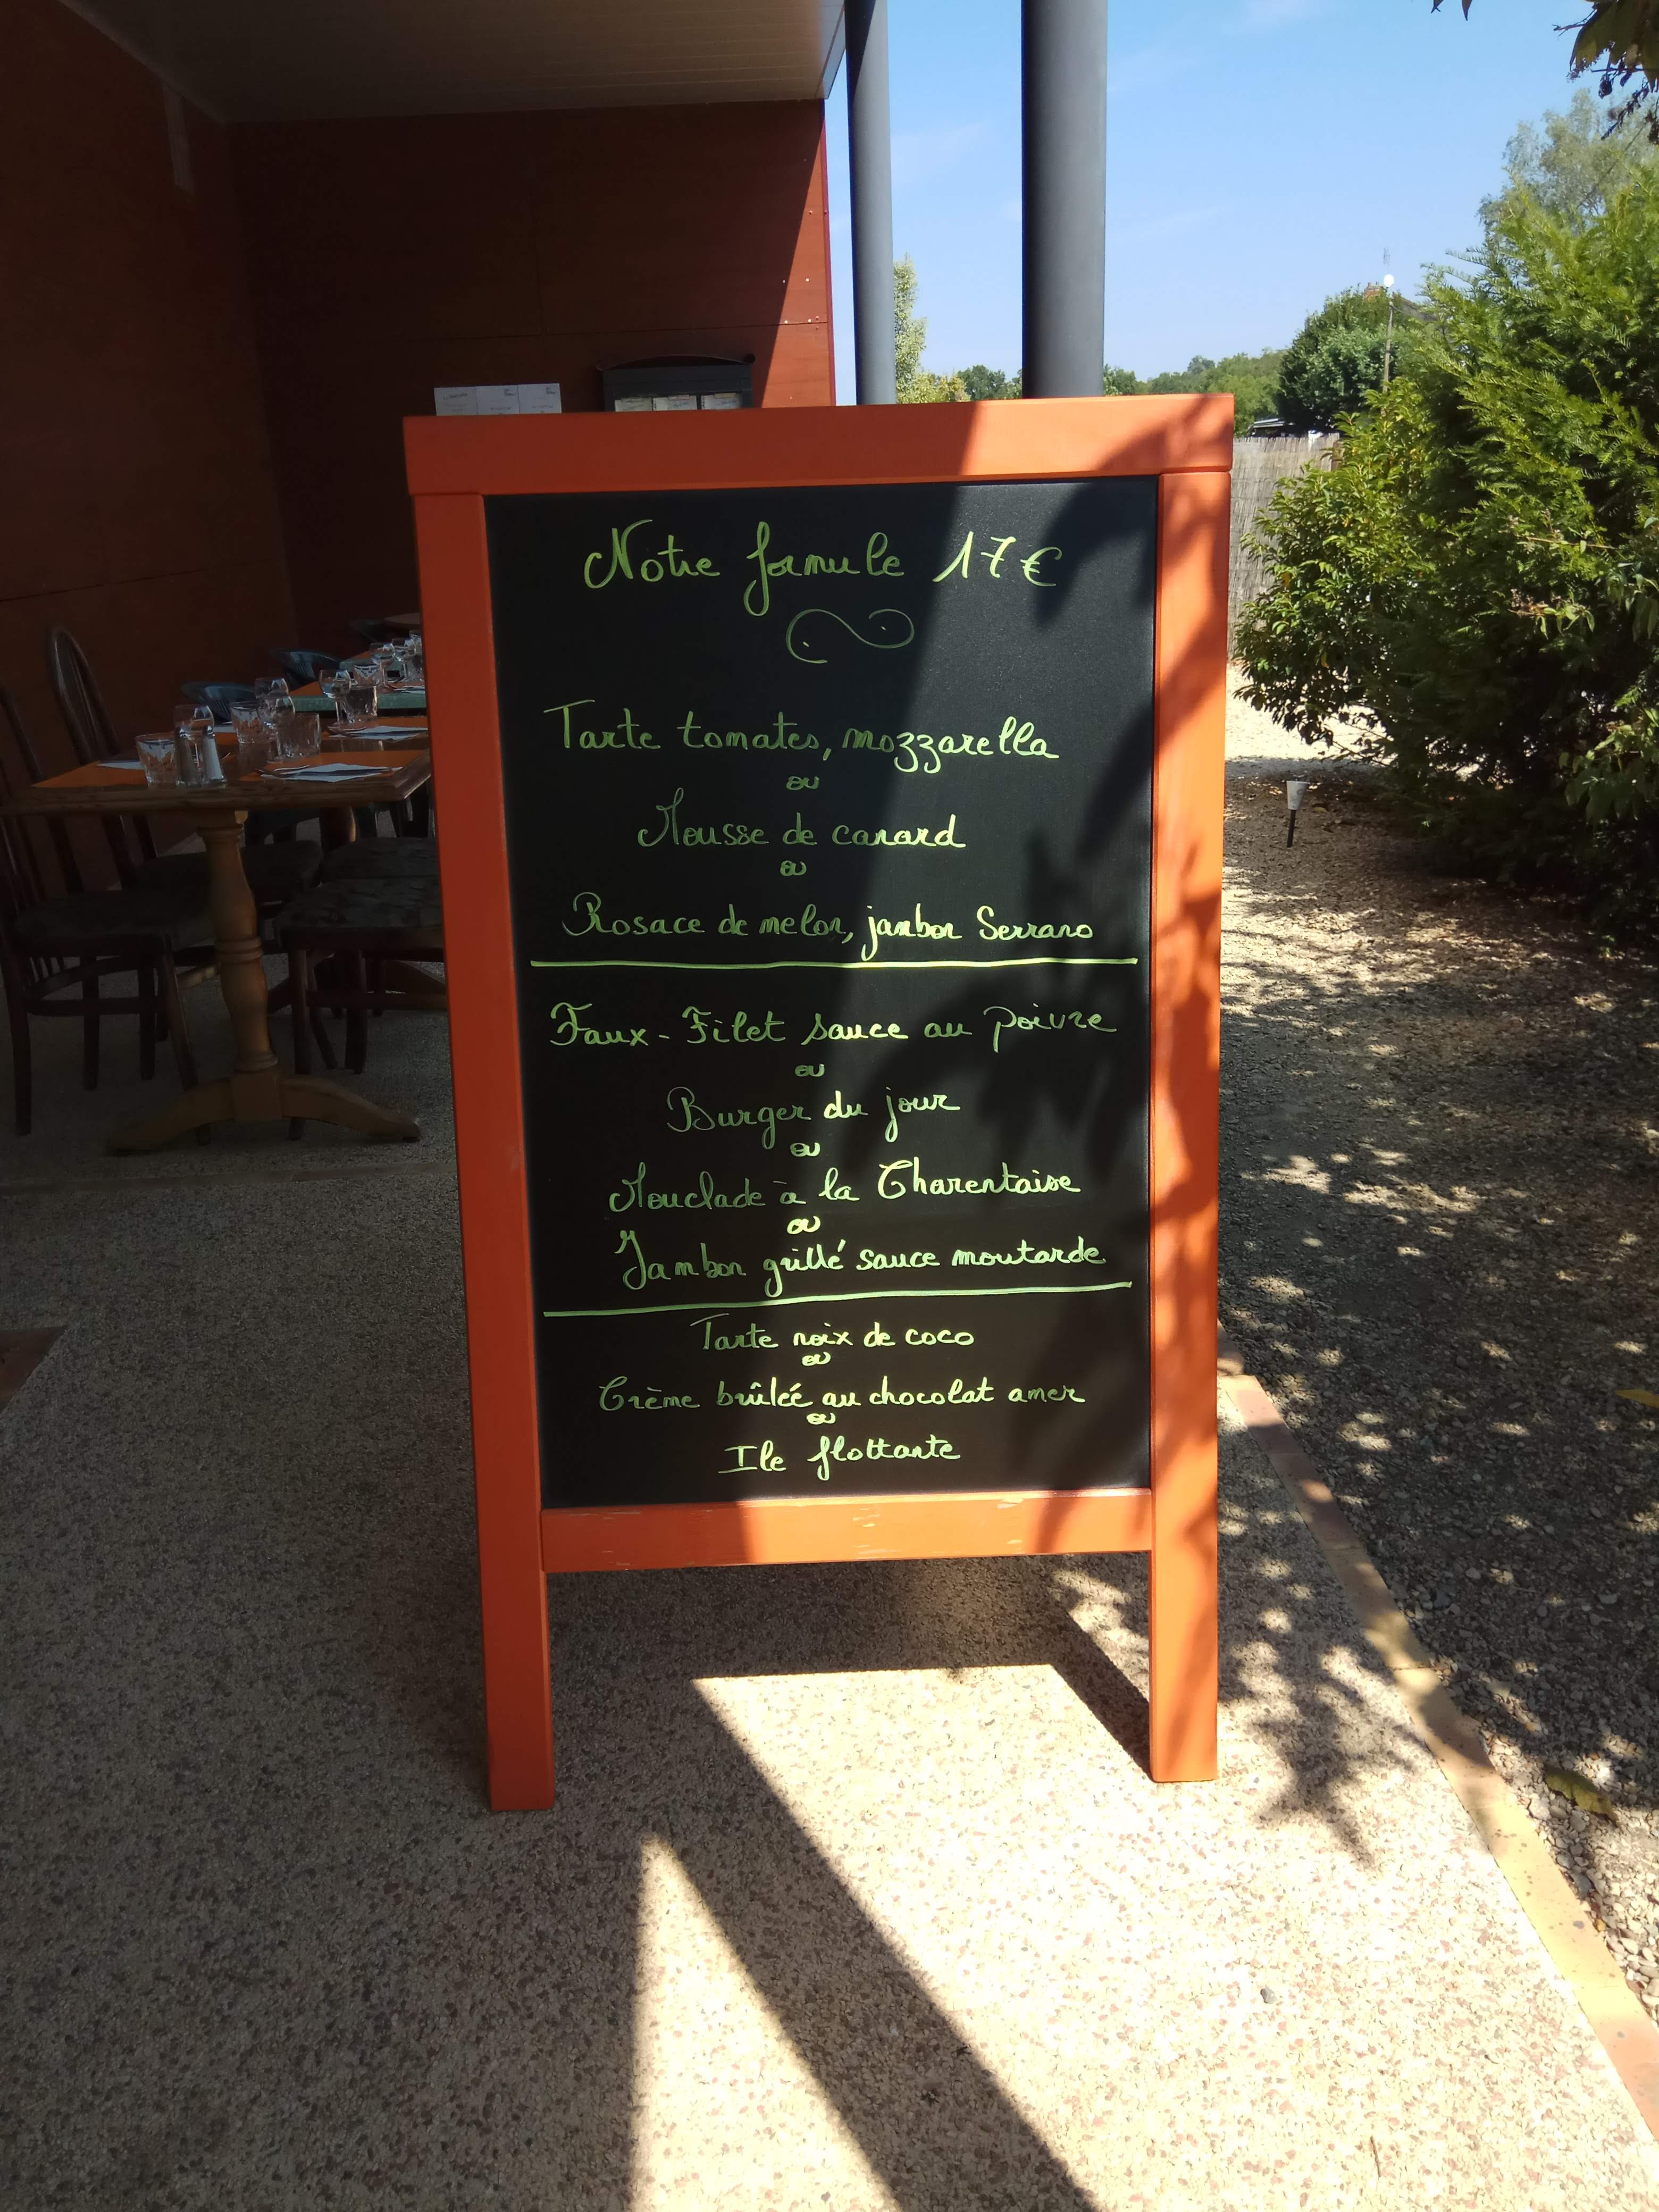 Notre formule 17€
Tarte tomates, mozzarella
ou
Mousse de canard
ou
Rosace de melon, jambon Serrano
Faux-Filet sauce au poivre
ou
Burger du jour
ou
Mouclade à la Charentaise
ou
Jambon grillé sauce moutarde
Tarte noix de coco
ou
Crème brûlée au chocolat amer
ou
Ile flottante